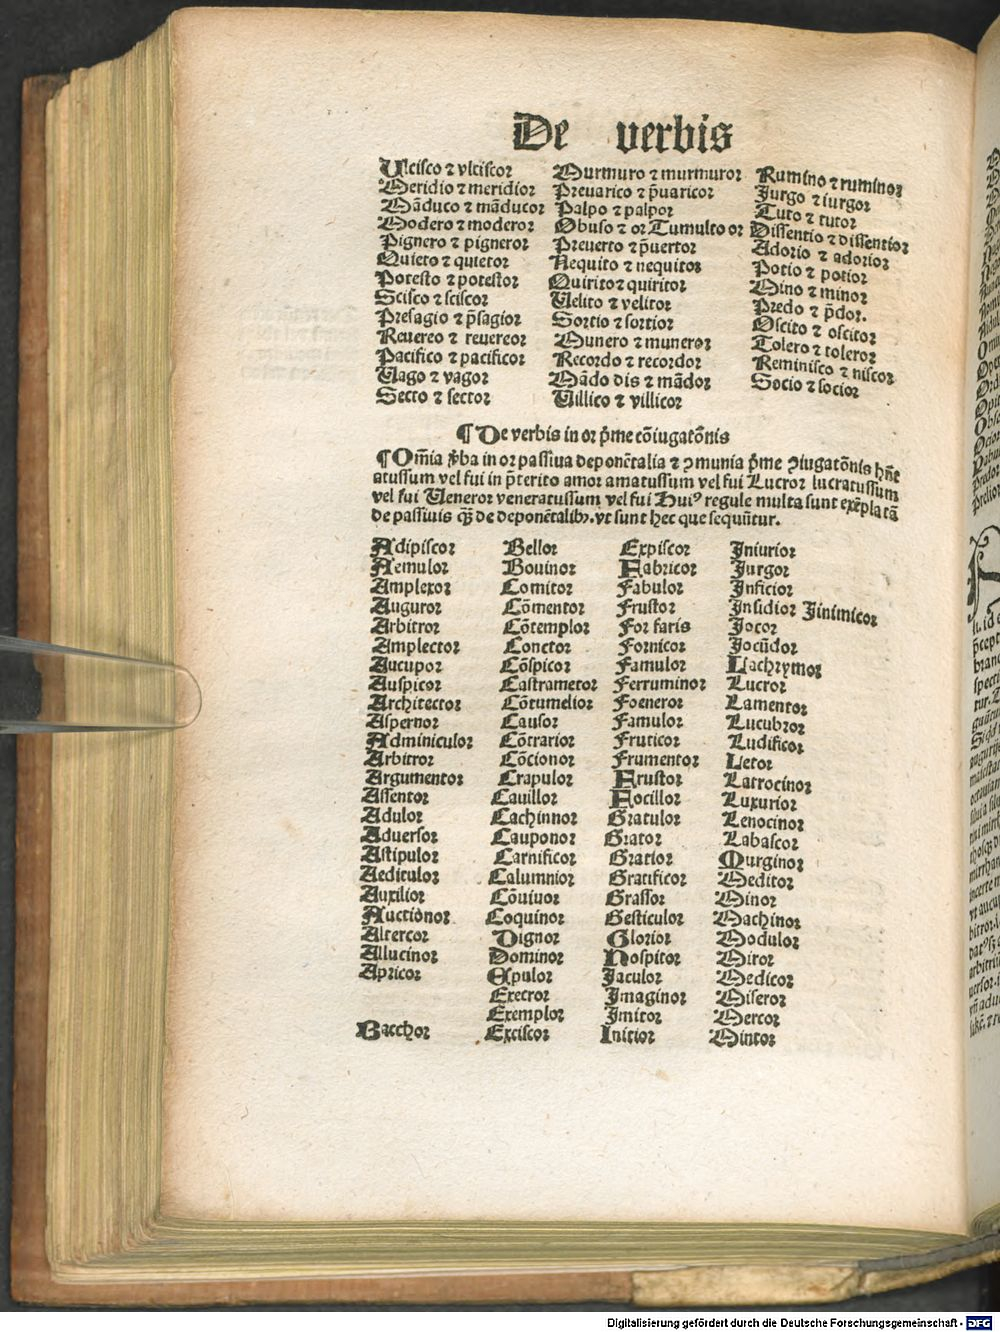 De verbis
Ulcisco ⁊ vlciscor
Meridio ⁊ meridior
Mãduco ⁊ mãducor
Modero ⁊ moderor
Pignero ⁊ pigneror
Quieto ⁊ quietor
Potesto ⁊ potestor
Scisco ⁊ sciscor
Presagio ⁊ p̃sagior
Reuereo ⁊ reuereor
Pacifico ⁊ pacificor
Uago ⁊ vagor
Secto ⁊ sector
Murmuro ⁊ murmuror
Preuarico ⁊ p̃uaricor
Palpo ⁊ palpor
Obuso ⁊ or Tumulto or
Preuerto ⁊ p̃uertor
Nequito ⁊ nequitor
Quirito ⁊ quiritor
Uelito ⁊ velitor
Sortio ⁊ sortior
Munero ⁊ muneror
Recordo ⁊ recordor
Mãdo dis ⁊ mãdor
Uillico ⁊ villicor
Rumino ⁊ ruminor
Jurgo ⁊ iurgor
Tuto ⁊ tutor
Dissentio ⁊ dissentior
Adorio ⁊ adorior
Potio ⁊ potior
Mino ⁊ minor
Predo ⁊ p̃dor.
Oscito ⁊ oscitor
Tolero ⁊ toleror
Reminisco ⁊ niscor
Socio ⁊ socior
¶ De verbis in or p̃me cõiugatõnis
¶ Om̃ia v̾ba in or passiua deponẽtalia ⁊ ꝯmunia p̃me ꝯiugatõnis hñt
atussum vel fui in p̃terito amor amatussum vel fui Lucror lucratussum
vel fui Ueneror veneratussum vel fui Huiꝰ regule multa sunt exẽpla tã
de passiuis qꝫ de deponẽtalibꝫ. vt sunt hec que sequũtur.
Adipiscor
Aemulor
Amplexor
Auguror
Arbitror
Amplector
Aucupor
Auspicor
Architector
Aspernor
Adminiculor
Arbitror
Argumentor
Assentor
Adulor
Aduersor
Astipulor
Aediculor
Auxilior
Auctionor
Altercor
Allucinor
Apricor
Bacchor
Bellor
Bouinor
Comitor
Cõmentor
Cõtemplor
Conctor
Cõspicor
Castrametor
Cõtumelior
Causor
Cõtrarior
Cõcionor
Crapulor
Cauillor
Cachinnor
Cauponor
Carnificor
Calumnior
Cõuiuor
Coquinor
Dignor
Dominor
Epulor
Execror
Exemplor
Exciscor
Expiscor
Fabricor
Fabulor
Frustor
For faris
Fornicor
Famulor
Ferruminor
Foeneror
Famulor
Fruticor
Frumentor
Frustor
Focillor
Gratulor
Grator
Gratior
Gratificor
Grassor
Gesticulor
Glorior
Hospitor
Jaculor
Jmaginor
Jmitor
Initior
Jniurior
Jurgor
Jnficior
Jnsidior Jinimicor
Jocor
Jocũdor
Lachrymor
Lucror
Lamentor
Lucubror
Ludificor
Letor
Latrocinor
Luxurior
Lenocinor
Labascor
Murginor
Meditor
Minor
Machinor
Modulor
Miror
Medicor
Miseror
Mercor
Mintor
Digitalisierung gefördert durch die Deutsche Forschungsgemeinschaft - DFG